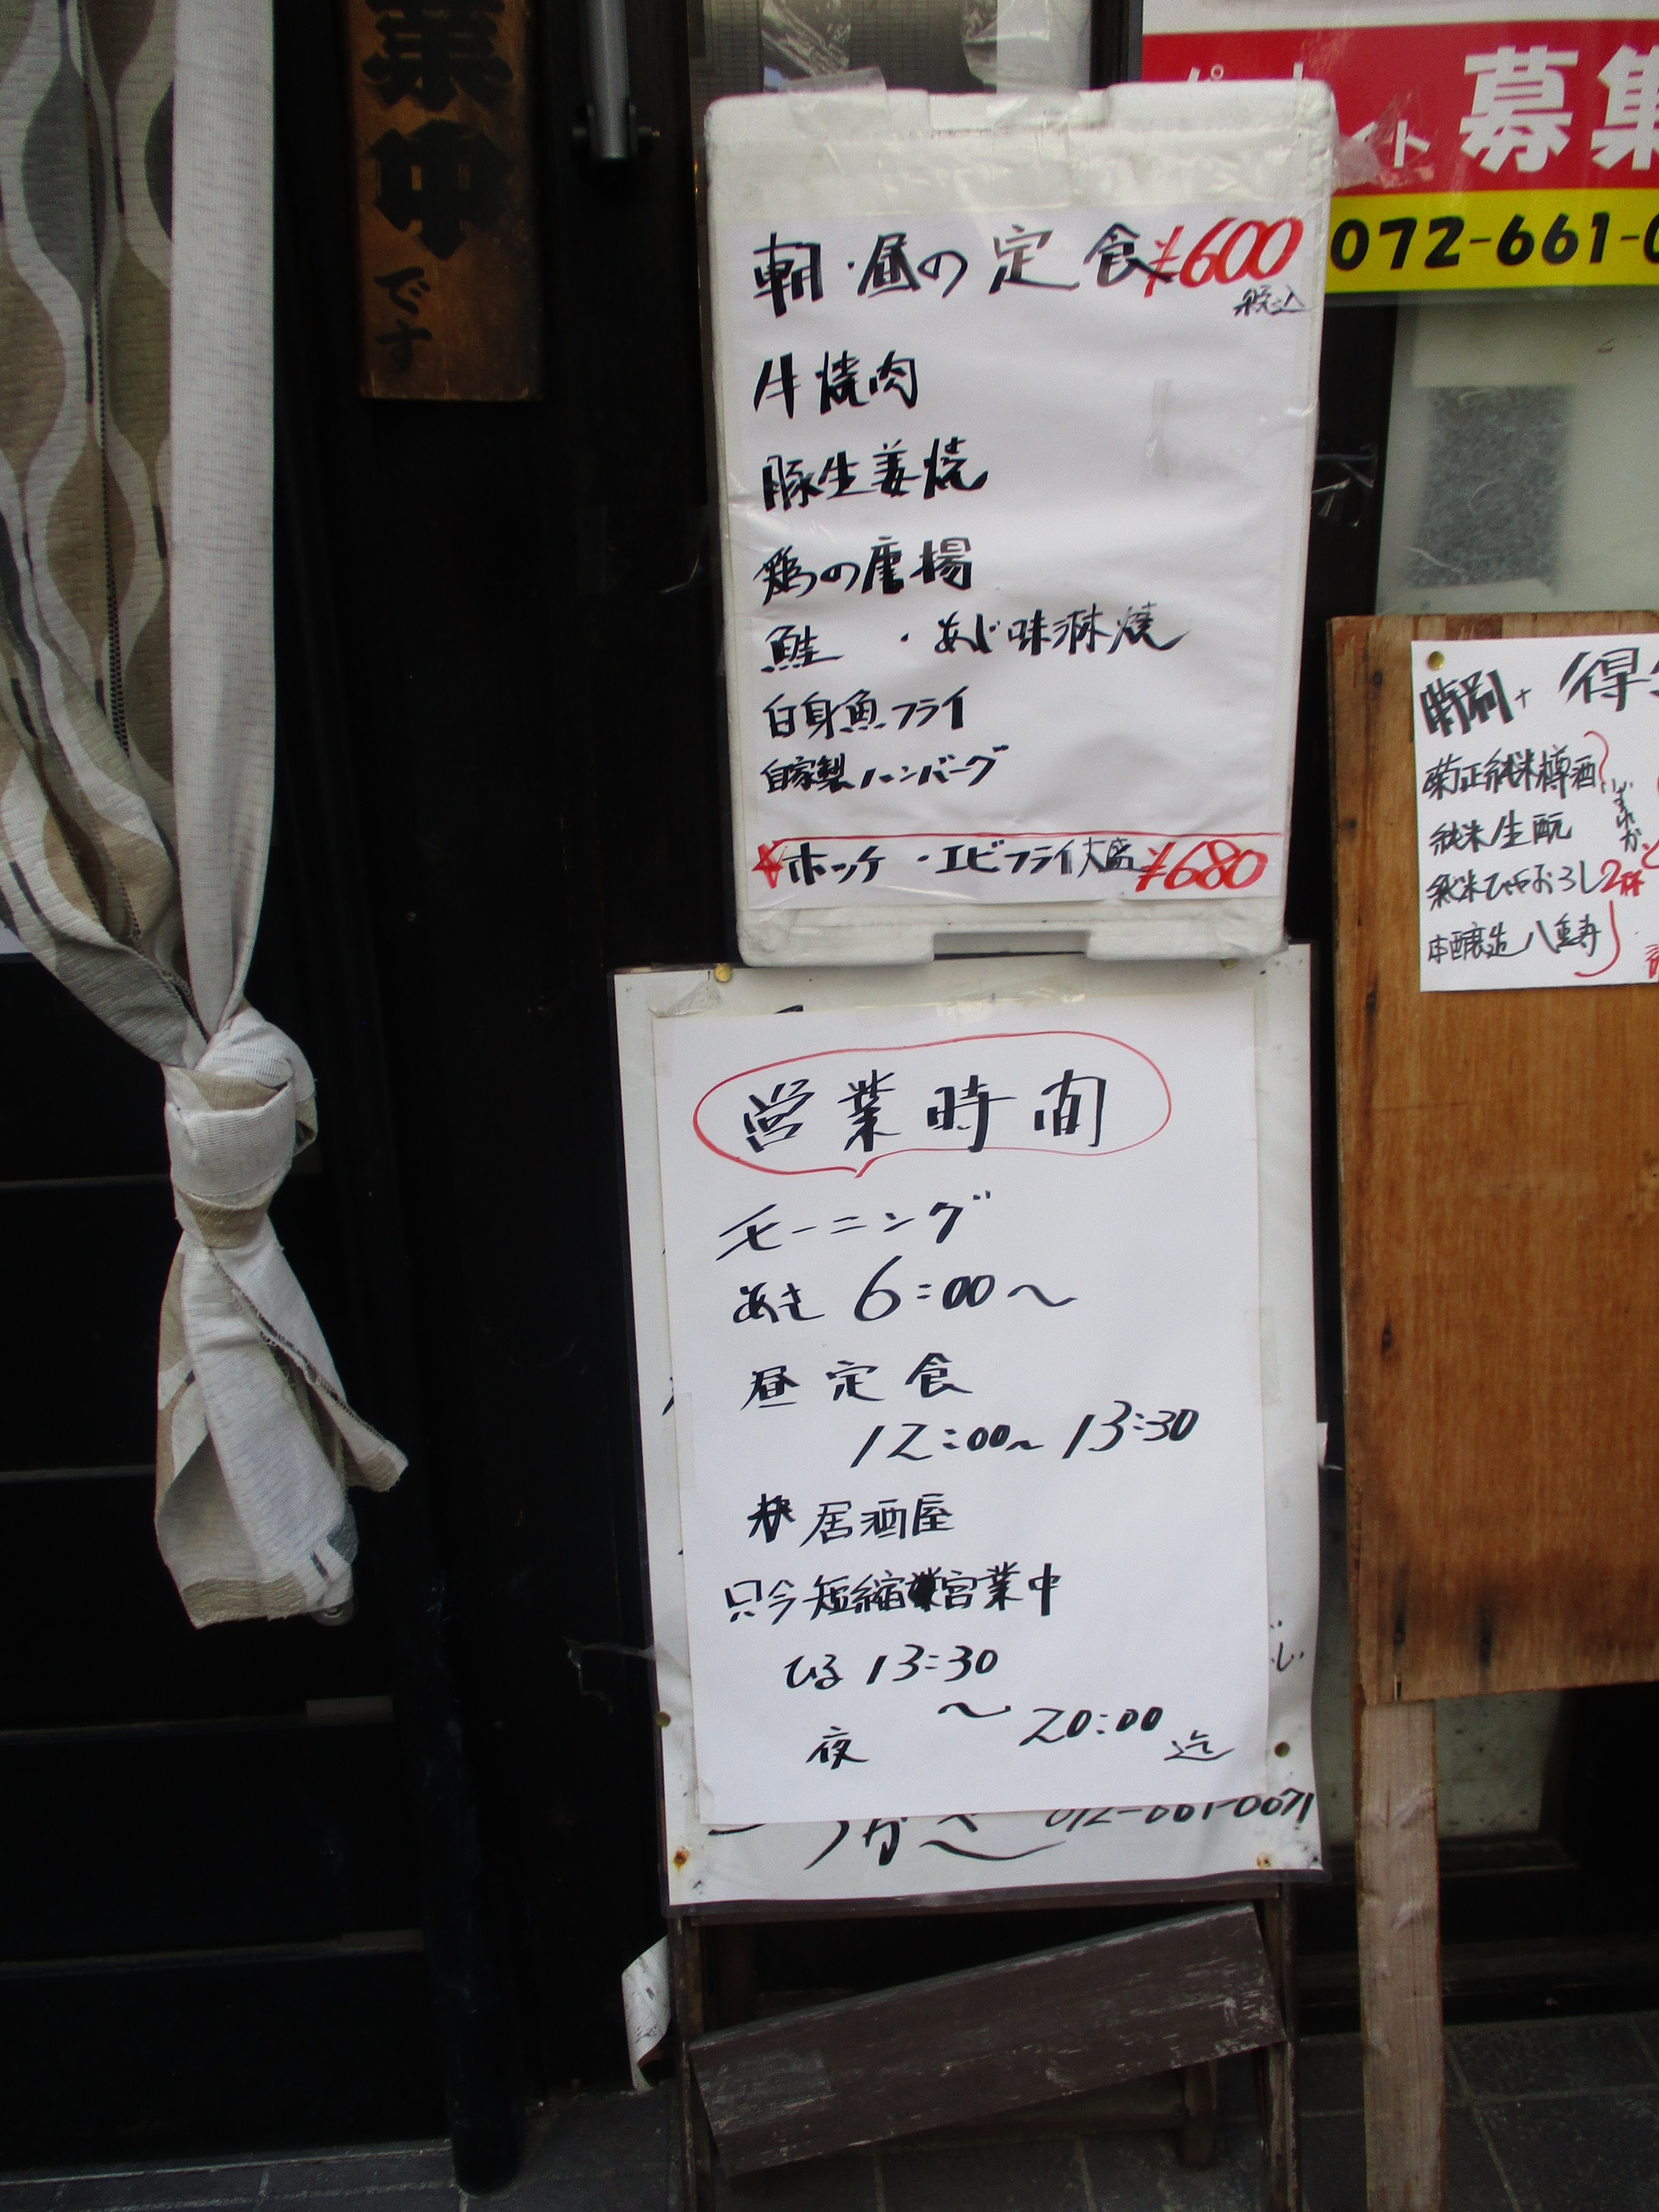 業中です
募集
イト
072-661-0
朝・昼の定食¥600
税込
牛焼肉
豚生姜焼
鶏の唐揚
鮭 ・あじ味淋焼
白身魚フライ
自家製ハンバーグ
ホッケ ・エビフライ大盛¥680
営業時間
モーニング
あさ 6:00〜
昼定食
12:00〜13:30
居酒屋
只今短縮営業中
ひる 13:30
〜20:00迄
夜
072-661-0071
得
菊正純米樽酒
いずれか
純米生酛
純米ひやおろし2種
本醸造八重寿